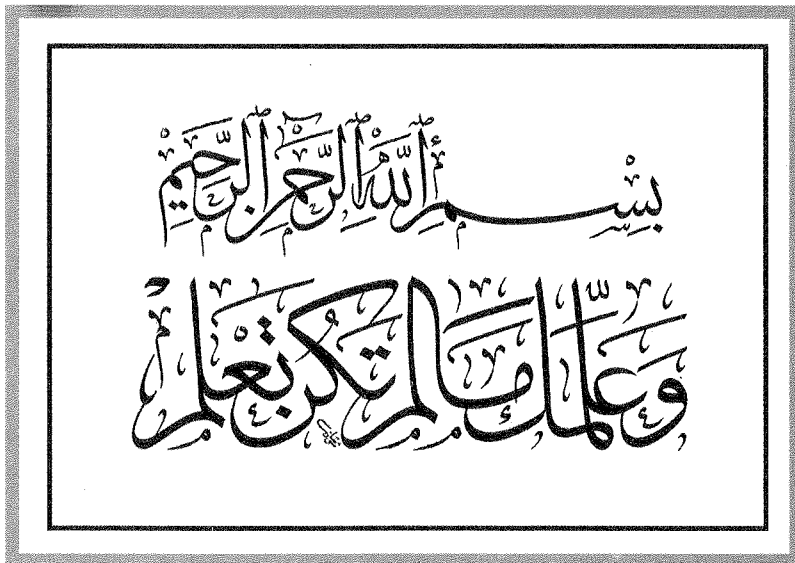 بِسْمِ ٱللَّهِ ٱلرَّحْمَٰنِ ٱلرَّحِيمِ
وَعَلَّمَكَ مَا لَمْ تَكُنْ تَعْلَمْ